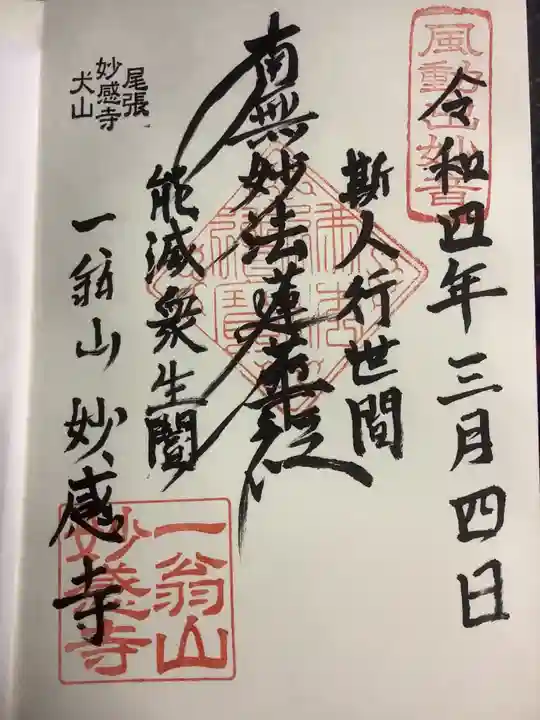 風動山妙音
令和四年三月四日
斯人行世間
南無妙法蓮華経
能滅衆生闇
尾張
妙感寺
犬山
一翁山 妙感寺
一翁山
妙感寺